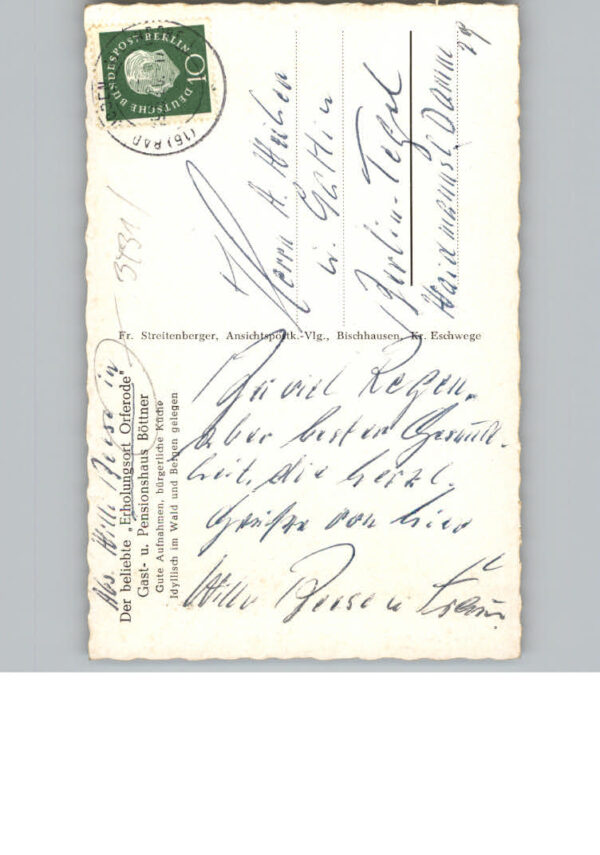 Der beliebte „Erholungsort Orferode"
Gast- u. Pensionshaus Böttner
Gute Aufnahmen, bürgerliche Küche
Idyllisch im Wald und Bergen gelegen
Abs. Willi Beese in
Fr. Streitenberger, Ansichtspostk.-Vlg., Bischhausen, Kr. Eschwege
DEUTSCHE BUNDESPOST BERLIN
10
(16) BAD
3431
Herrn A.
u. Gattin
Berlin-Tegel
Damm
29
Zu viel Regen,
aber bester Gesund-
heit, die herzl.
Grüße von hier
Willi Beese u. Frau